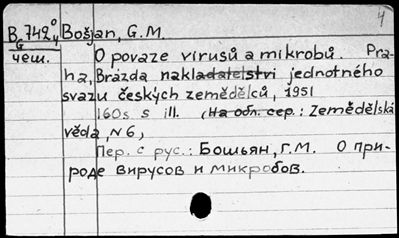 4
B 742⁰₄ Bošjan, G.M.
G
чеш. O povaze virusů a mikrobů. Pra-
ha, Brázda nakladatelstvi jednotného
svazu českých zemědělců, 1951
160s s ill. (На обл. сер.: Zemědělská
věda, N6)
Пер. с рус.: Бошьян, Г.М. О при-
роде вирусов и микробов.